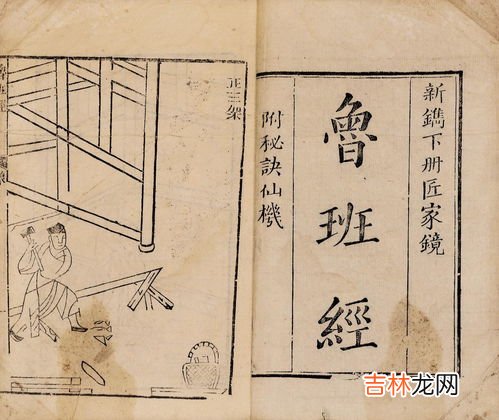 新鐫下册匠家鏡
魯班經
附秘訣仙機
正三架
吉林龙网